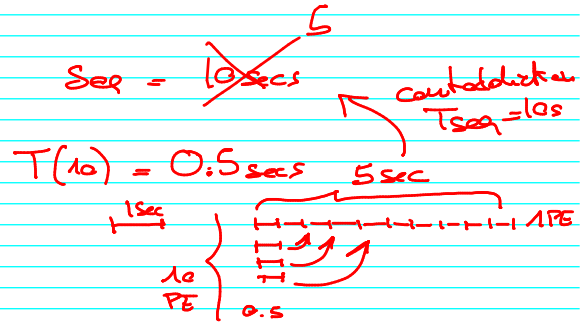 5
Seq = 10 secs
contradiction
Tseq = 10s
T(10) = 0.5 secs
5 sec
1 sec
1 PE
10
PE
0.5